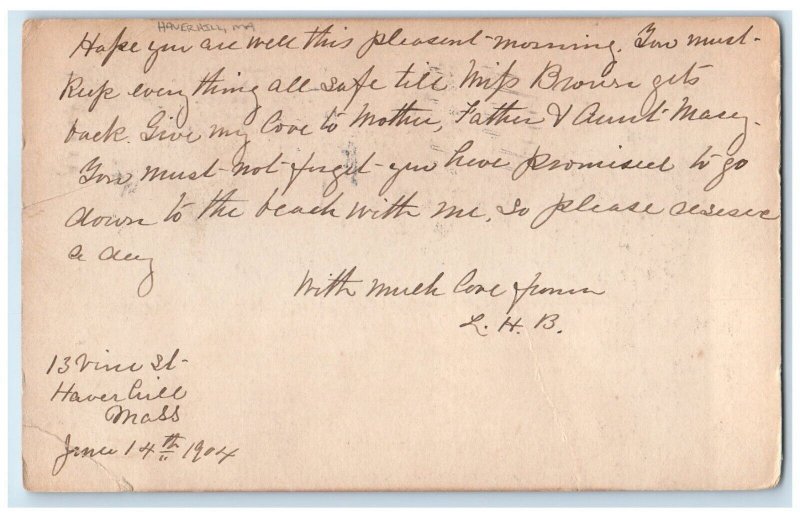 HAVERHILL, MA
Hope you are well this pleasent morning. You must
keep everything all safe till Miss Brown gets
back. Give my love to Mother, Father & Aunt Mary.
You must not forget you have promised to go
down to the beach with me, so please reserve
a day
With much love from
L. H. B.
13 Vine St
Haverhill
Mass
June 14th 1904